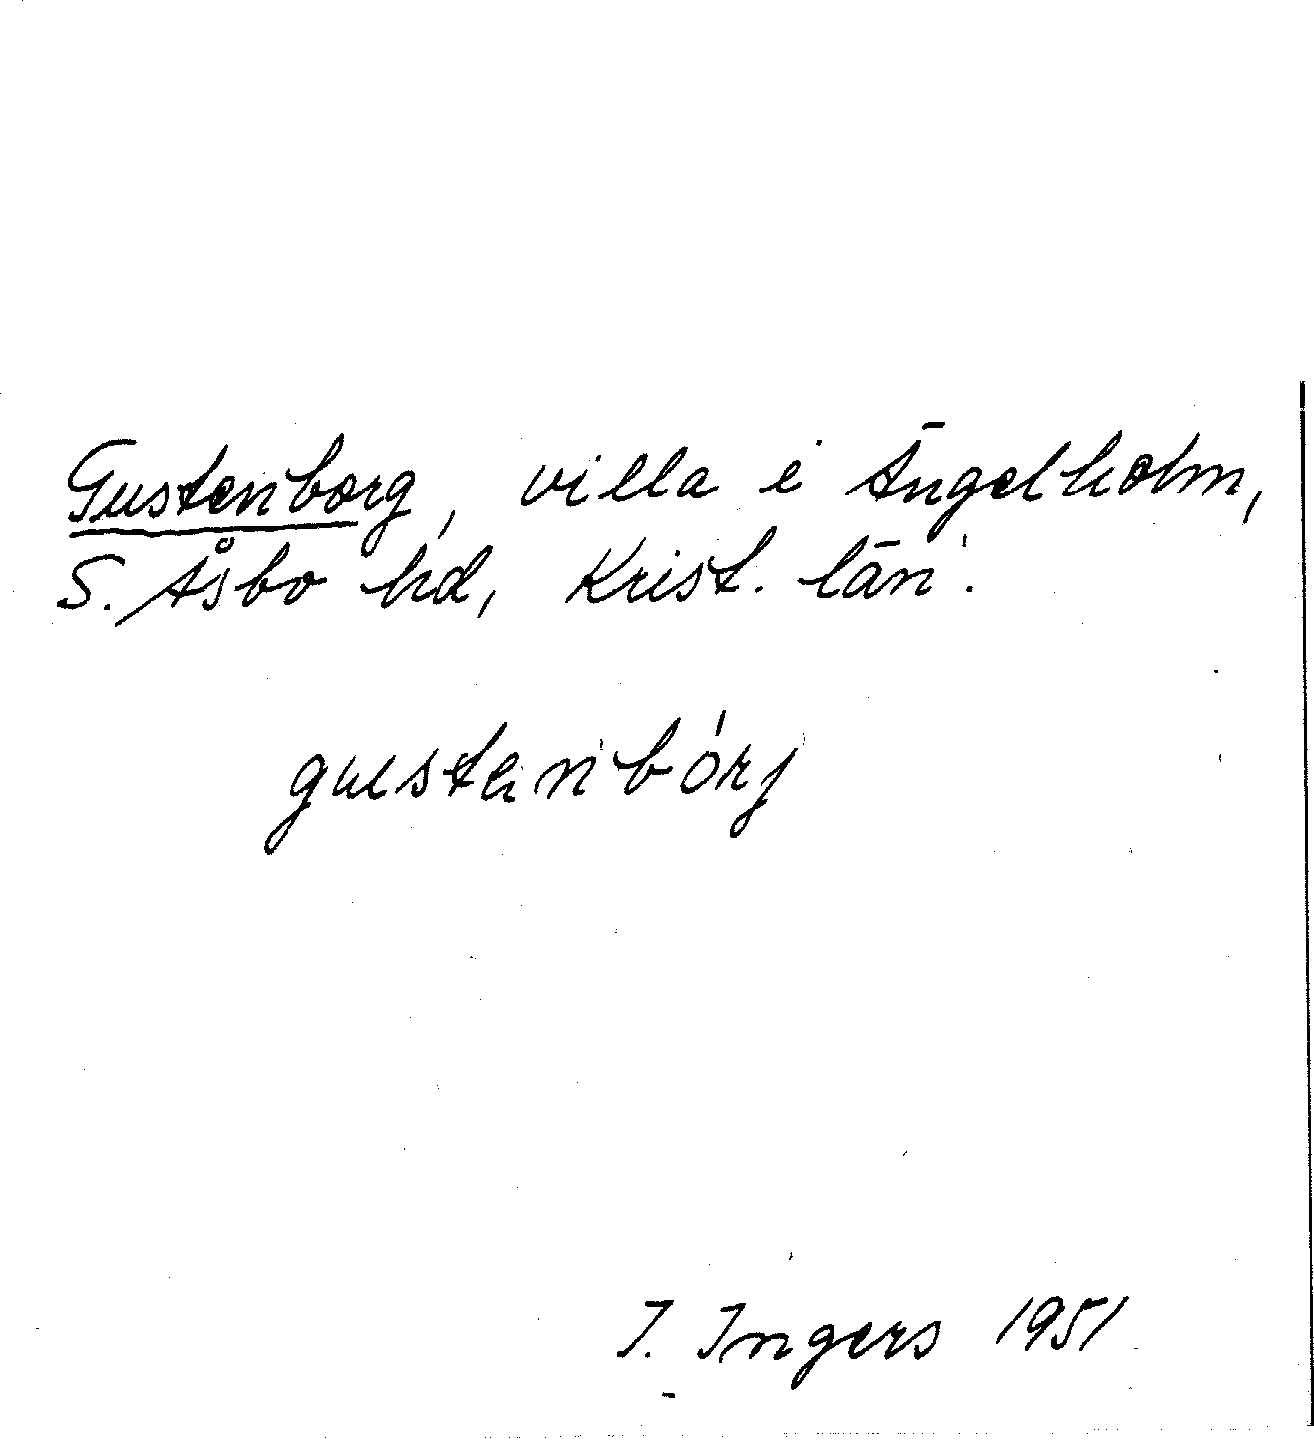 Gustenborg, villa i Ängelholm,
S. Åsbo hd, Krist. län.
gustanbórj
I. Ingers 1951